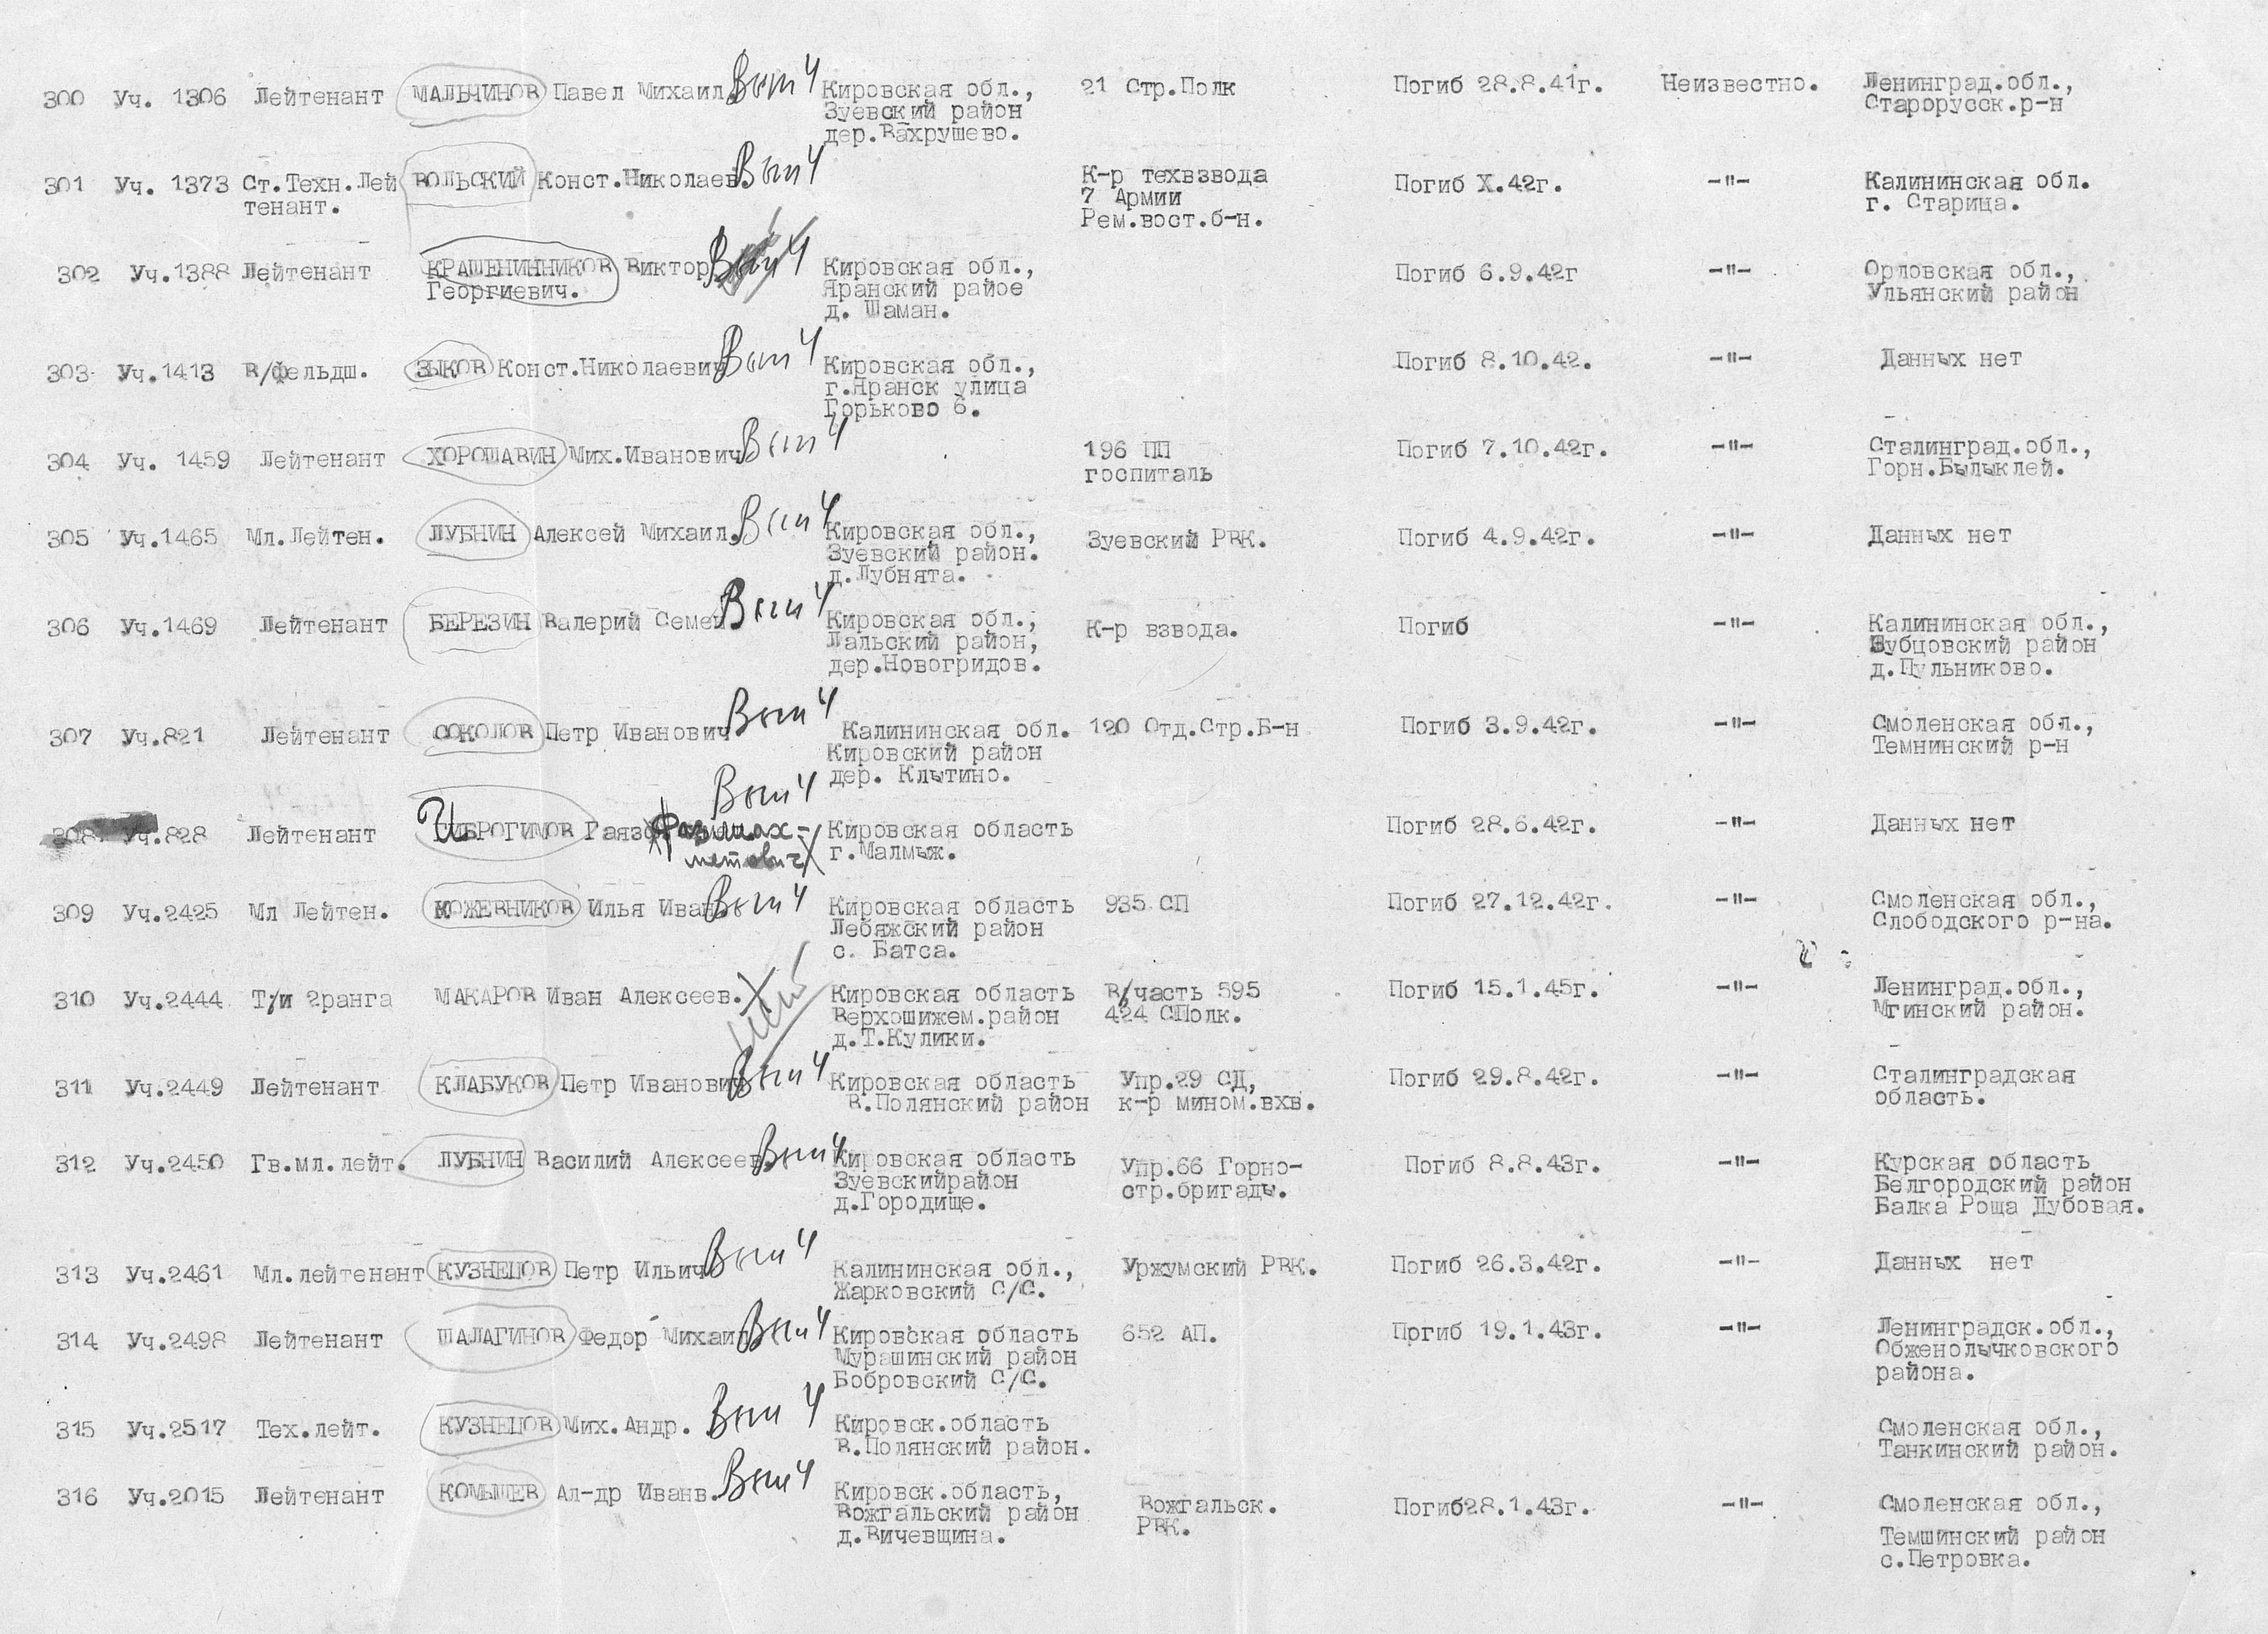 300 Уч. 1306 Лейтенант МАЛЬЧИНОВ Павел Михаил. Вып ч Кировская обл., 21 Стр.Полк Погиб 28.8.41г. Неизвестно. Ленинград.обл.,
Зуевский район Старорусск.р-н
дер.Вахрушево.
301 Уч. 1373 Ст.Техн.Лей ВОЛЬСКИЙ Конст.Николаев. Вып ч К-р техвзвода Погиб X.42г. -"- Калининская обл.
тенант. 7 Армии г. Старица.
Рем.вост.б-н.
302 Уч.1388 Лейтенант КРАШЕНИННИКОВ Виктор Кировская обл., Погиб 6.9.42г -"- Орловская обл.,
Георгиевич. Яранский райое Ульянский район
д. Шаман.
303 Уч.1413 В/фельдш. ЗЫКОВ Конст.Николаевич Вып ч Кировская обл., Погиб 8.10.42. -"- Данных нет
г.Яранск улица
Горьково 6.
304 Уч. 1459 Лейтенант ХОРОШАВИН Мих.Иванович Вып ч 196 ПП Погиб 7.10.42г. -"- Сталинград.обл.,
госпиталь Горн.Былыклей.
305 Уч.1465 Мл.Лейтен. ЛУБНИН Алексей Михаил. Вып ч Кировская обл., Зуевский РВК. Погиб 4.9.42г. -"- Данных нет
Зуевский район.
д.Лубнята.
306 Уч.1469 Лейтенант БЕРЕЗИН Валерий Семен Вып ч Кировская обл., К-р взвода. Погиб -"- Калининская обл.,
Лальский район, Зубцовский район
дер.Новогридов. д.Пульниково.
307 Уч.821 Лейтенант СОКОЛОВ Петр Иванович Вып ч Калининская обл. 120 Отд.Стр.Б-н Погиб 3.9.42г. -"- Смоленская обл.,
Кировский район Темнинский р-н
дер. Клытино.
Вып ч
308 Уч.828 Лейтенант ИБРОГИМОВ Гаяз Кировская область Погиб 28.6.42г. -"- Данных нет
метович г.Малмыж.
309 Уч.2425 Мл Лейтен. КОЖЕВНИКОВ Илья Иван. Вып ч Кировская область 935 СП Погиб 27.12.42г. -"- Смоленская обл.,
Лебяжский район Слободского р-на.
с. Батса.
310 Уч.2444 Т/и 2ранга МАКАРОВ Иван Алексеев. Кировская область В/часть 595 Погиб 15.1.45г. -"- Ленинград.обл.,
Верхошижем.район 424 СПолк. Мгинский район.
д.Т.Кулики.
311 Уч.2449 Лейтенант КЛАБУКОВ Петр Иванович Вып ч Кировская область Упр.29 СД, Погиб 29.8.42г. -"- Сталинградская
В.Полянский район к-р мином.вхв. область.
312 Уч.2450 Гв.мл.лейт. ЛУБНИН Василий Алексеев. Вып ч Кировская область Упр.66 Горно- Погиб 8.8.43г. -"- Курская область
Зуевскийрайон стр.бригады. Белгородский район
д.Городище. Балка Роща Дубовая.
313 Уч.2461 Мл.лейтенант КУЗНЕЦОВ Петр Ильич Вып ч Калининская обл., Уржумский РВК. Погиб 26.3.42г. -"- Данных нет
Жарковский С/С.
314 Уч.2498 Лейтенант ШАЛАГИНОВ Федор Михаил. Вып ч Кировская область 652 АП. Погиб 19.1.43г. -"- Ленинградск.обл.,
Мурашинский район Обженолычковского
Бобровский С/С. района.
315 Уч.2517 Тех.лейт. КУЗНЕЦОВ Мих.Андр. Вып ч Кировск.область Смоленская обл.,
В.Полянский район. Танкинский район.
316 Уч.2015 Лейтенант КОМЫШЕВ Ал-др Иванв. Вып ч Кировск.область, Вожгальск. Погиб28.1.43г. -"- Смоленская обл.,
Вожгальский район РВК. Темшинский район
д.Вичевщина. с.Петровка.